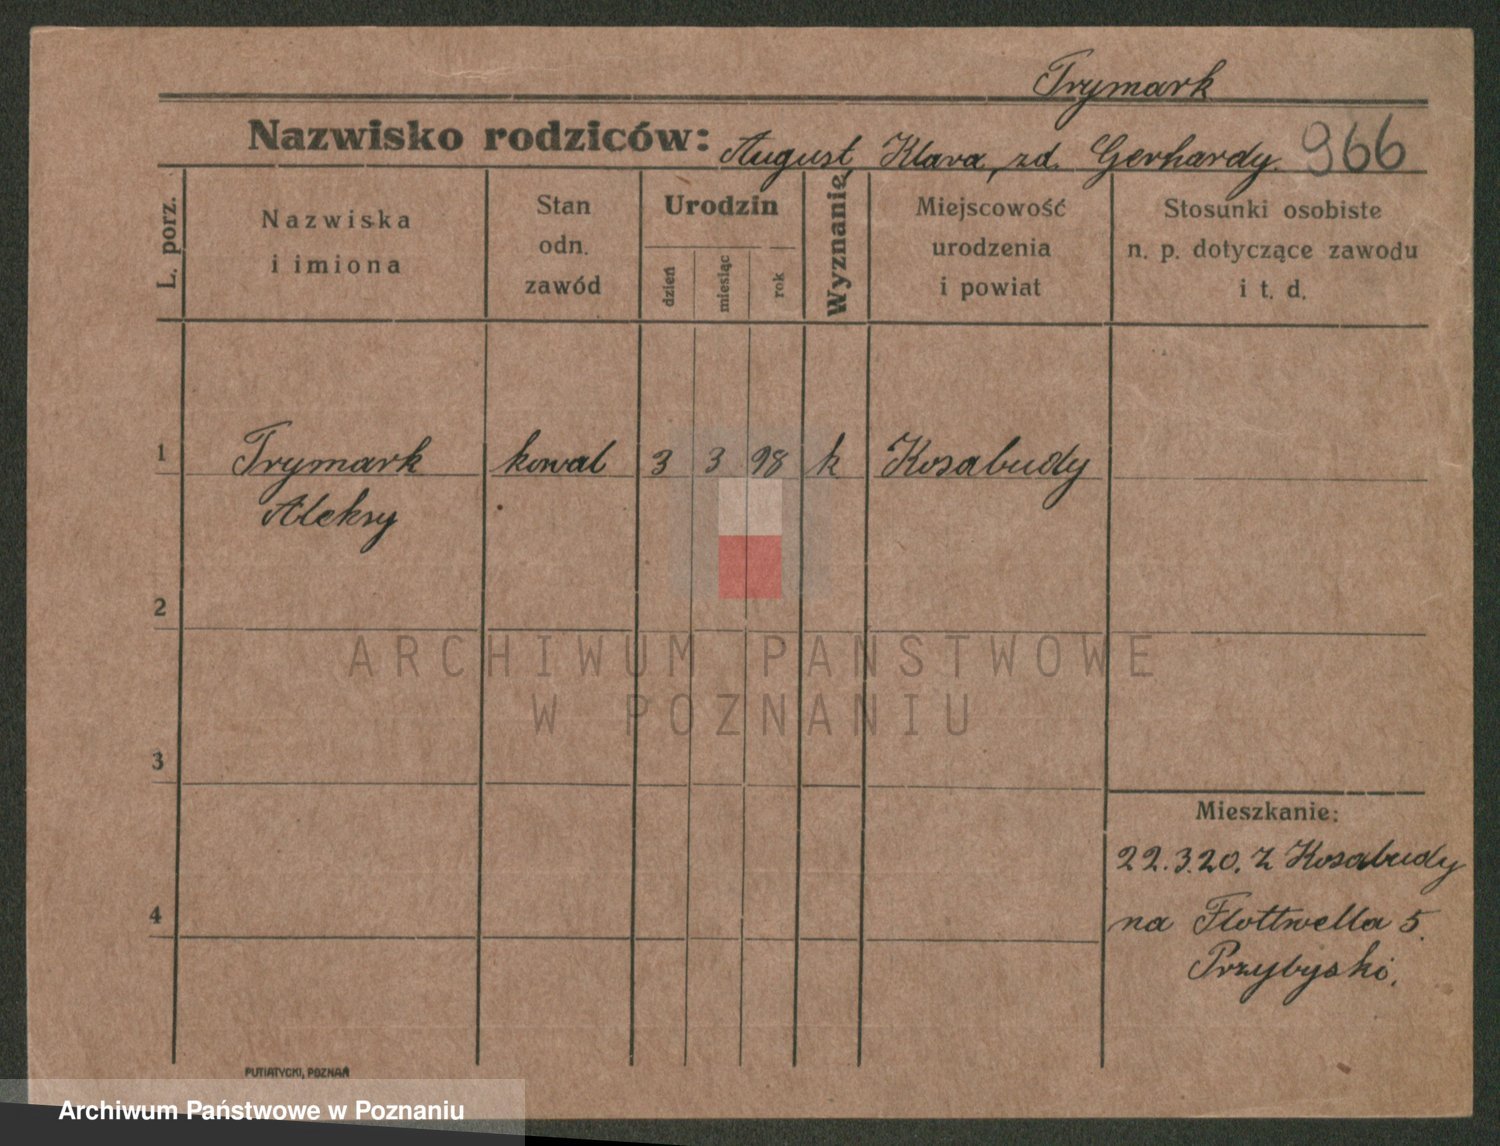 Trymark
Nazwisko rodziców: August, Klara, zd. Gerhardy. 966
L. porz.
Nazwiska
i imiona
Stan
odn.
zawód
Urodzin
dzień
miesiąc
rok
Wyznanie
Miejscowość
urodzenia
i powiat
Stosunki osobiste
n. p. dotyczące zawodu
i t. d.
1 Trymark kowal 3 3 98 k Kosabudy
Aleksy
2
ARCHIWUM PAŃSTWOWE
W POZNANIU
3
Mieszkanie:
22.3.20. z Kosabudy
4
na Flottwella 5.
Przybyski.
PUTIATYCKI, POZNAŃ
Archiwum Państwowe w Poznaniu